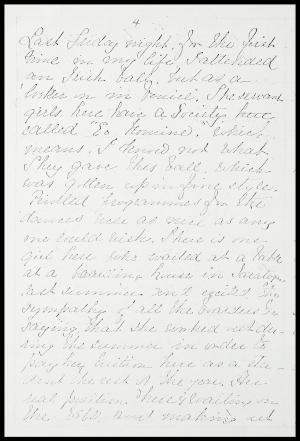 4
Last Friday night, for the first
time in my life I attended
an Irish ball, but as a
looker on in Venice. The servant
girls here have a Society here
called "Eo Nomine," which
means, I know not what.
They gave this ball, which
was gotten up in fine style.
Printed Programmes for the
dances were as nice as any
one could wish. There is one
girl here who waited at a table
at a boarding house in Saratoga
last summer and excited the
sympathy of all the boarders by
saying that she worked not du-
ring the summer in order to
pay her tuition here as a stu-
dent the rest of the year. Her
real position here is waiting on
the table, and making